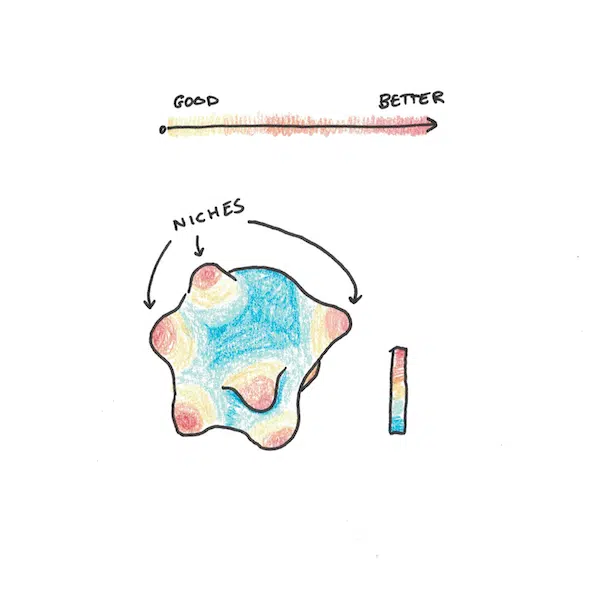 GOOD
BETTER
NICHES